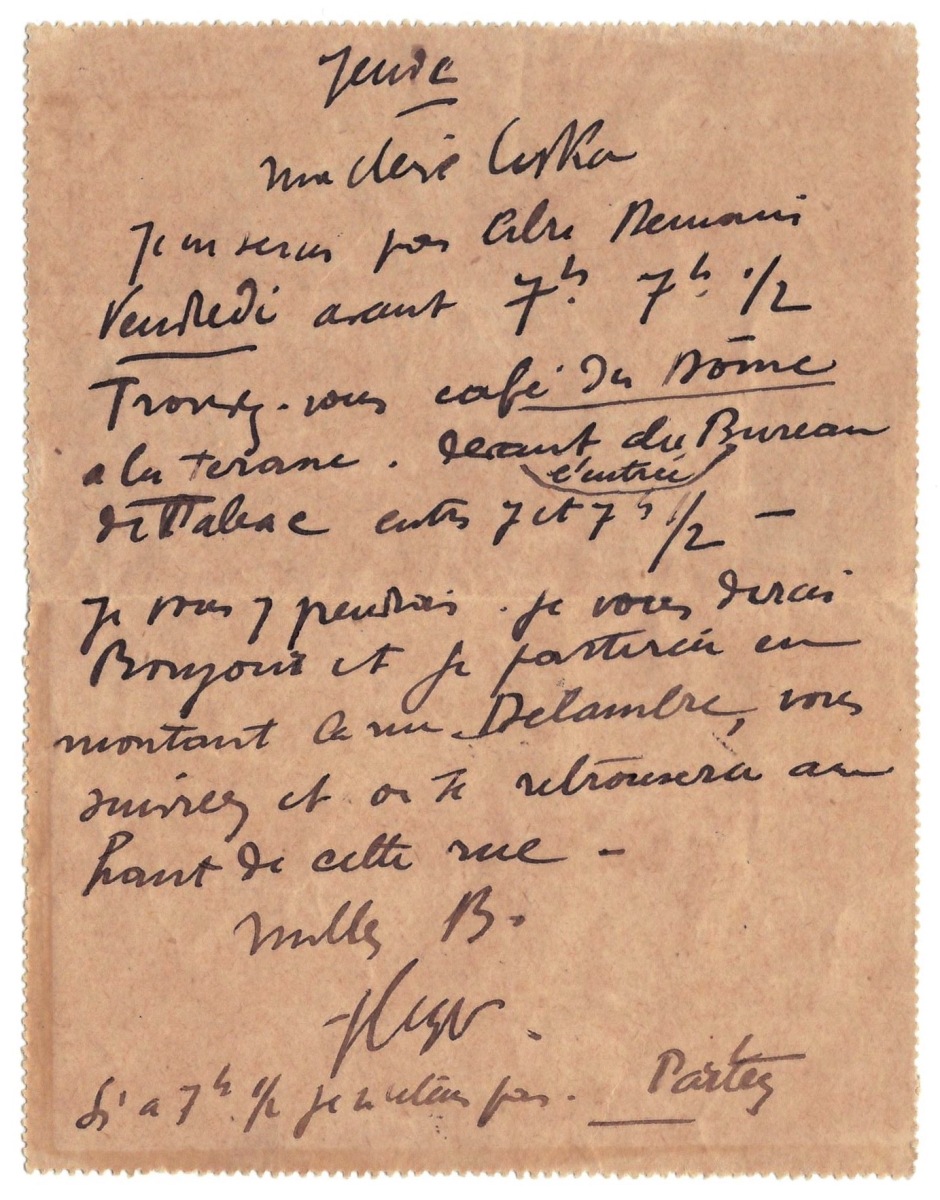 Jeudi
ma chérie Luska
Je ne serai pas libre Demain
Vendredi avant 7h. 7h. 1/2
Trouvez-vous café du Dôme
a la terasse. devant du Bureau
l'entrée
de Tabac entre 7 et 7h 1/2 –
Je vous y prendrai. Je vous dirai
Bonjour et je partirai en
montant la rue Delambre, vous
suivrez et on se retrouvera au
haut de cette rue –
Milles B.
FLeger.
Si a 7h. 1/2 je n'étais pas. Partez